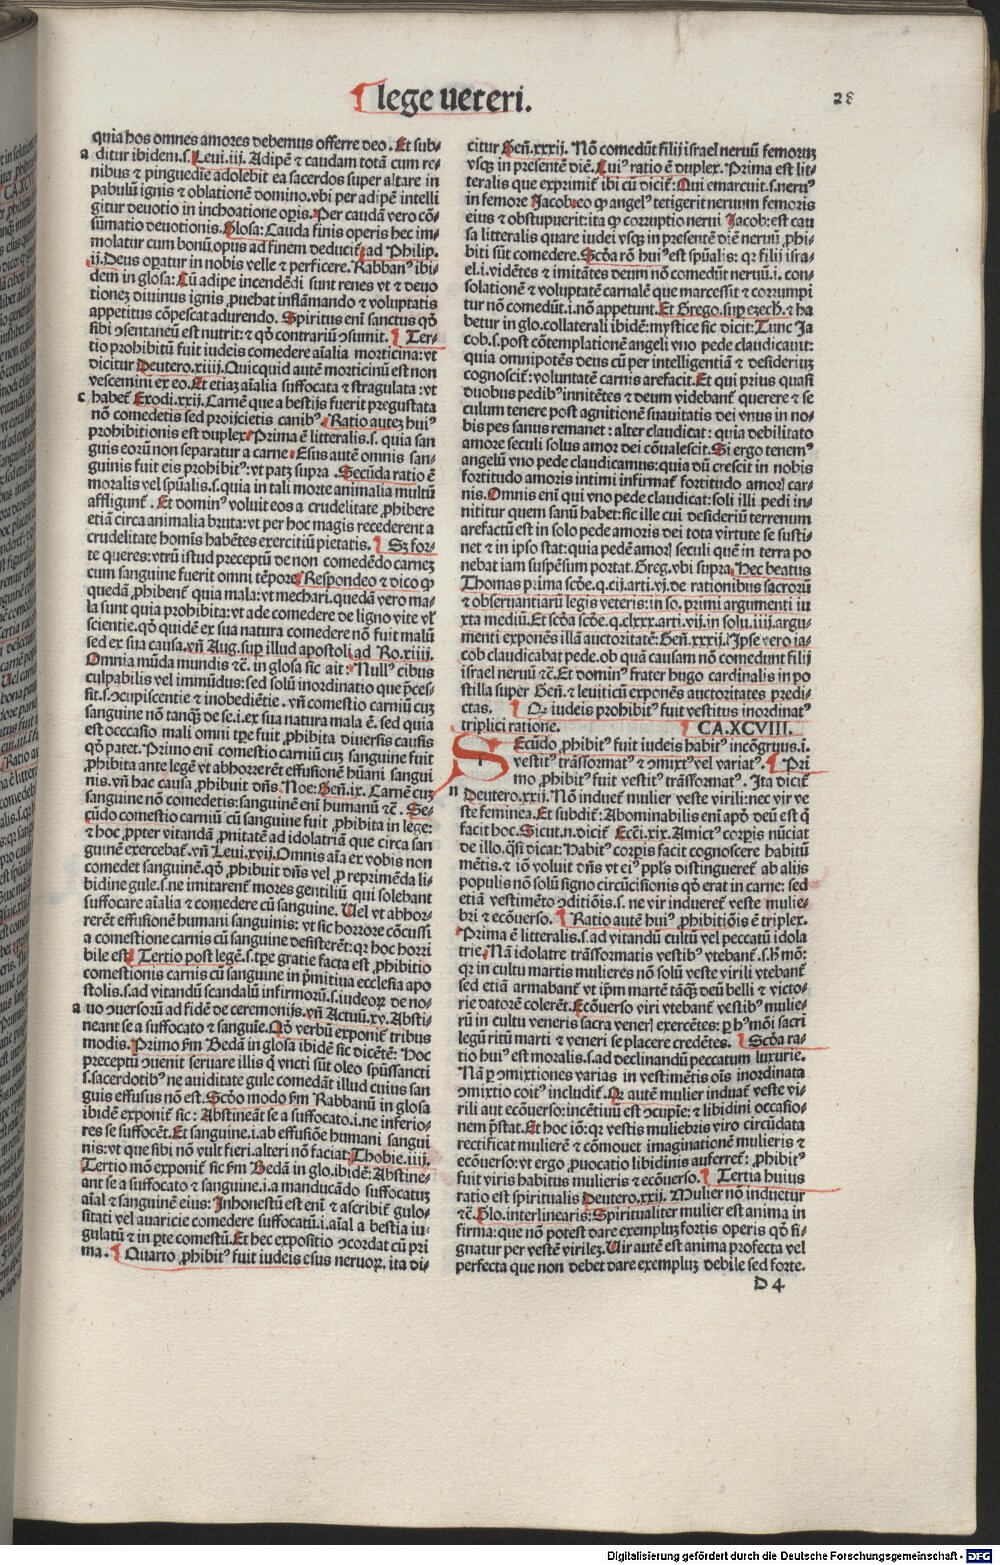 ¶ lege veteri.
28
quia hos omnes amores debemus offerre deo. Et sub-
a ditur ibidem.s. Leui.iij. Adipē & caudam totā cum re-
nibus & pinguedīe adolebit ea sacerdos super altare in
pabulū ignis & oblationē domino.vbi per adipē intelli
gitur deuotio in inchoatione opis. Per caudā vero cō-
sūmatio deuotionis. Glosa: Cauda finis operis hec im-
molatur cum bonū opus ad finem deducit̄ ad Philip.
ij. Deus opatur in nobis velle & perficere. Rabban⁹ ibi-
dem in glosa: Cū adipe incendēdi sunt renes vt & deuo
tionez diuinus ignis ꝓuehat inflāmando & voluptatis
appetitus cōpescat adurendo. Spiritus enī sanctus qđ
sibi ↄsentaneū est nutrit: & qđ contrariū ↄsumit. ¶ Ter-
tio prohibitū fuit iudeis comedere aīalia morticina: vt
dicitur Deutero.xiiij. Quicquid autē morticinū est non
vescemini ex eo. Et etiaz aīalia suffocata & stragulata: vt
c habet̄ Exodi.xxij. Carnē que a bestijs fuerit pregustata
nō comedetis sed proijcietis canib⁹. Ratio autez hui⁹
prohibitionis est duplex. Prima ē litteralis.s. quia san
guis eorū non separatur a carne. Esus autē omnis san-
guinis fuit eis prohibit⁹: vt patz supra. Secūda ratio ē
moralis vel spūalis.s. quia in tali morte animalia multū
affligunt̄. Et domin⁹ voluit eos a crudelitate ꝓhibere
etiā circa animalia bruta: vt per hoc magis recederent a
crudelitate homīs habētes exercitiū pietatis. ¶ Sz for-
te queres: vtrū istud preceptū de non comedēdo carnez
cum sanguine fuerit omni tēpore. Respondeo & dico ꝙ
quedā ꝓhibent̄ quia mala: vt mechari. quedā vero ma-
la sunt quia prohibita: vt ade comedere de ligno vite vl'
scientie. qđ quidē ex sua natura comedere nō fuit malū
sed ex sua causa. vñ Aug. sup illud apostoli ad Ro.xiiij.
Omnia mūda mundis &c̄. in glosa sic ait: Null⁹ cibus
culpabilis vel immūdus: sed solū inordinatio que p̄ces-
sit.s. ↄcupiscentie & inobediētie. vñ comestio carniū cuz
sanguine nō tanq̄ de se.i. ex sua natura mala ē. sed quia
est occasio mali omni tpe fuit ꝓhibita diuersis causis
qđ patet. Primo enī comestio carniū cuz sanguine fuit
ꝓhibita ante legē vt abhorrerēt effusionē hūani sangui
nis. vñ hac causa ꝓhibuit dñs Noe: Geñ.ix. Carnē cuz
sanguine nō comedetis: sanguinē enī humanū &c̄. Se-
cūdo comestio carniū cū sanguine fuit ꝓhibita in lege:
& hoc propter vitandā ꝓnitatē ad idolatriā que circa san
guinē exercebat̄. vñ Leui.xvij. Omnis aīa ex vobis non
comedet sanguinē. qđ ꝓhibuit dñs vel ꝓ reprimēda li-
bidine gule.s. ne imitarent̄ mores gentiliū qui solebant
suffocare aīalia & comedere cū sanguine. Uel vt abhor-
rerēt effusionē humani sanguinis: vt sic horrore cōcussi
a comestione carnis cū sanguine desisterēt: qr hoc horri
bile est. Tertio post legē.s. tpe gratie facta est ꝓhibitio
comestionis carnis cū sanguine in p̄mitiua ecclesia apo
stolis.s. ad vitandū scandalū infirmorū.s. iudeoꝝ de no-
a uo ↄuersorū ad fidē de cermonijs. vñ Actuū.xv. Absti-
neant se a suffocato & sanguīe. Qđ verbū exponit̄ tribus
modis. Primo fm Bedā in glosa ibidē sic dicētē: Hoc
preceptū ↄuenit seruare illis q̄ vncti sūt oleo spūssancti
s. sacerdotib⁹ ne auiditate gule comedāt illud cuius san
guis effusus nō est. Scđo modo fm Rabbanū in glosa
ibidē exponit̄ sic: Abstineāt se a suffocato.i. ne inferio-
res se suffocēt. Et sanguine.i. ab effusiōe humani sangui
nis: vt que sibi nō vult fieri. alteri nō faciat: Thobie.iiij.
Tertio mō exponit̄ sic fm Bedā in glo. ibidē: Abstine-
ant se a suffocato & sanguine.i. a manducādo suffocatuz
aīal & sanguinē eius: Inhonestū est enī & ascribit̄ gulo-
sitati vel auaricie comedere suffocatū.i. aīal a bestia iu-
gulatū & in pte comestū. Et hec expositio ↄcordat cū pri
ma. ¶ Quarto ꝓhibit⁹ fuit iudeis esus neruoꝝ. ita di-
citur Geñ.xxxij. Nō comedūt filij israel neruū femoruz
vsqꝫ in presentē diē. Cui⁹ ratio ē duplex. Prima est lit-
teralis que exprimit̄ ibi cū dicit̄: Qui emarcuit.s. neru⁹
in femore Jacob: eo ꝙ angel⁹ tetigerit neruum femoris
eius & obstupuerit: ita ꝙ corruptio nerui Jacob: est cau
sa litteralis quare iudei vsqꝫ in presentē diē neruū ꝓhi-
biti sūt comedere. Scđa rō hui⁹ est spūalis: qr filij isra-
el.i. vidētes & imitātes deum nō comedūt neruū.i. con-
solationē & voluptatē carnalē que marcessit & corrumpi
tur nō comedūt.i. nō appetunt. Et Grego. sup ezech. & ha
betur in glo. collaterali ibidē: mystice sic dicit: Tunc Ja
cob.s. post cōtemplationē angeli vno pede claudicauit:
quia omnipotēs deus cū per intelligentiā & desideriuz
cognoscit̄: voluntatē carnis arefacit. Et qui prius quasi
duobus pedib⁹ innitētes & deum videbant̄ querere & se
culum tenere post agnitionē suauitatis dei vnus in no-
bis pes sanus remanet: alter claudicat: quia debilitato
amore seculi solus amor dei cōualescit. Si ergo tenem⁹
angelū vno pede claudicamus: quia dū crescit in nobis
fortitudo amoris intimi infirmat̄ fortitudo amorꝭ car-
nis. Omnis enī qui vno pede claudicat: soli illi pedi in-
nititur quem sanū habet: sic ille cui desideriū terrenum
arefactū est in solo pede amoris dei tota virtute se susti-
net & in ipso stat: quia pedē amorꝭ seculi quē in terra po
nebat iam suspēsum portat. Greg. vbi supra. Hec beatus
Thomas prima scđe. q.cij. arti.vj. de rationibus sacrorū
& obseruantiarū legis veteris: in so. primi argumenti iu
xta mediū. Et scđa scđe. q.clxxx. arti.vij. in solu. iiij. argu-
menti exponēs illā auctoritatē: Geñ.xxxij. Ipse vero ia-
cob claudicabat pede. ob quā causam nō comedunt filij
israel neruū &c̄. Et domin⁹ frater hugo cardinalis in po
stilla super Geñ. & leuiticū exponēs auctoritates predi-
ctas. ¶ Qr iudeis prohibit⁹ fuit vestitus inordinat⁹
triplici ratione. ¶ CA.XCVIII.
Secūdo ꝓhibit⁹ fuit iudeis habit⁹ incōgruus.i.
vestit⁹ trāsformat⁹ & ↄmixt⁹ vel variat⁹. ¶ Pri
mo ꝓhibit⁹ fuit vestit⁹ trāsformat⁹. Ita dicit̄
n Deutero.xxij. Nō induet̄ mulier veste virili: nec vir ve
ste feminea. Et subdit̄: Abominabilis enī apđ deū est q̄
facit hoc. Sicut.n. dicit̄ Ecc̄i.xix. Amict⁹ corpis nūciat
de illo. q̄si dicat: Habit⁹ corpis facit cognoscere habitū
mētis. & iō voluit dñs vt ei⁹ ppls distingueret̄ ab alijs
populis nō solū signo circūcisionis qđ erat in carne: sed
etiā vestimēto ↄditiōis.s. ne vir indueret̄ veste mulie-
bri & ecōuerso. ¶ Ratio autē hui⁹ ꝓhibitiōis ē triplex.
Prima ē litteralis.s. ad vitandū cultū vel peccatū idola
trie. Nā idolatre trāsformatis vestib⁹ vtebant̄.s. h⁾ mō:
qr in cultu martis mulieres nō solū veste virili vtebant̄
sed etiā armabant̄ vt ip̄m martē tāq̄ deū belli & victo-
rie datorē colerēt. Ecōuerso viri vtebant̄ vestib⁹ mulie-
rū in cultu veneris sacra venerꝭ exercētes: ꝑ h⁾mōi sacri
legū ritū marti & veneri se placere credētes. ¶ Scđa ra-
tio hui⁹ est moralis.s. ad declinandū peccatum luxurie.
Nā ꝑ ↄmixtiones varias in vestimētis oīs inordinata
ↄmixtio coit⁹ includit̄. Qr autē mulier induat̄ veste vi-
rili aut ecōuerso: incētiuū est ↄcupie: & libidini occasio-
nem p̄stat. Et hoc iō: qr vestis muliebris viro circūdata
rectificat mulierē & cōmouet imaginationē mulieris &
ecōuerso: vt ergo ꝓuocatio libidinis auferret̄: ꝓhibit⁹
fuit viris habitus mulieris & ecōuerso. ¶ Tertia huius
ratio est spiritualis Deutero.xxij. Mulier nō induetur
&c̄. Glo. interlinearis: Spiritualiter mulier est anima in
firma: que nō potest dare exempluz fortis operis qđ si-
gnatur per vestē virilez. Uir autē est anima profecta vel
perfecta que non debet dare exempluz debile sed forte.
D 4
Digitalisierung gefördert durch die Deutsche Forschungsgemeinschaft - DFG